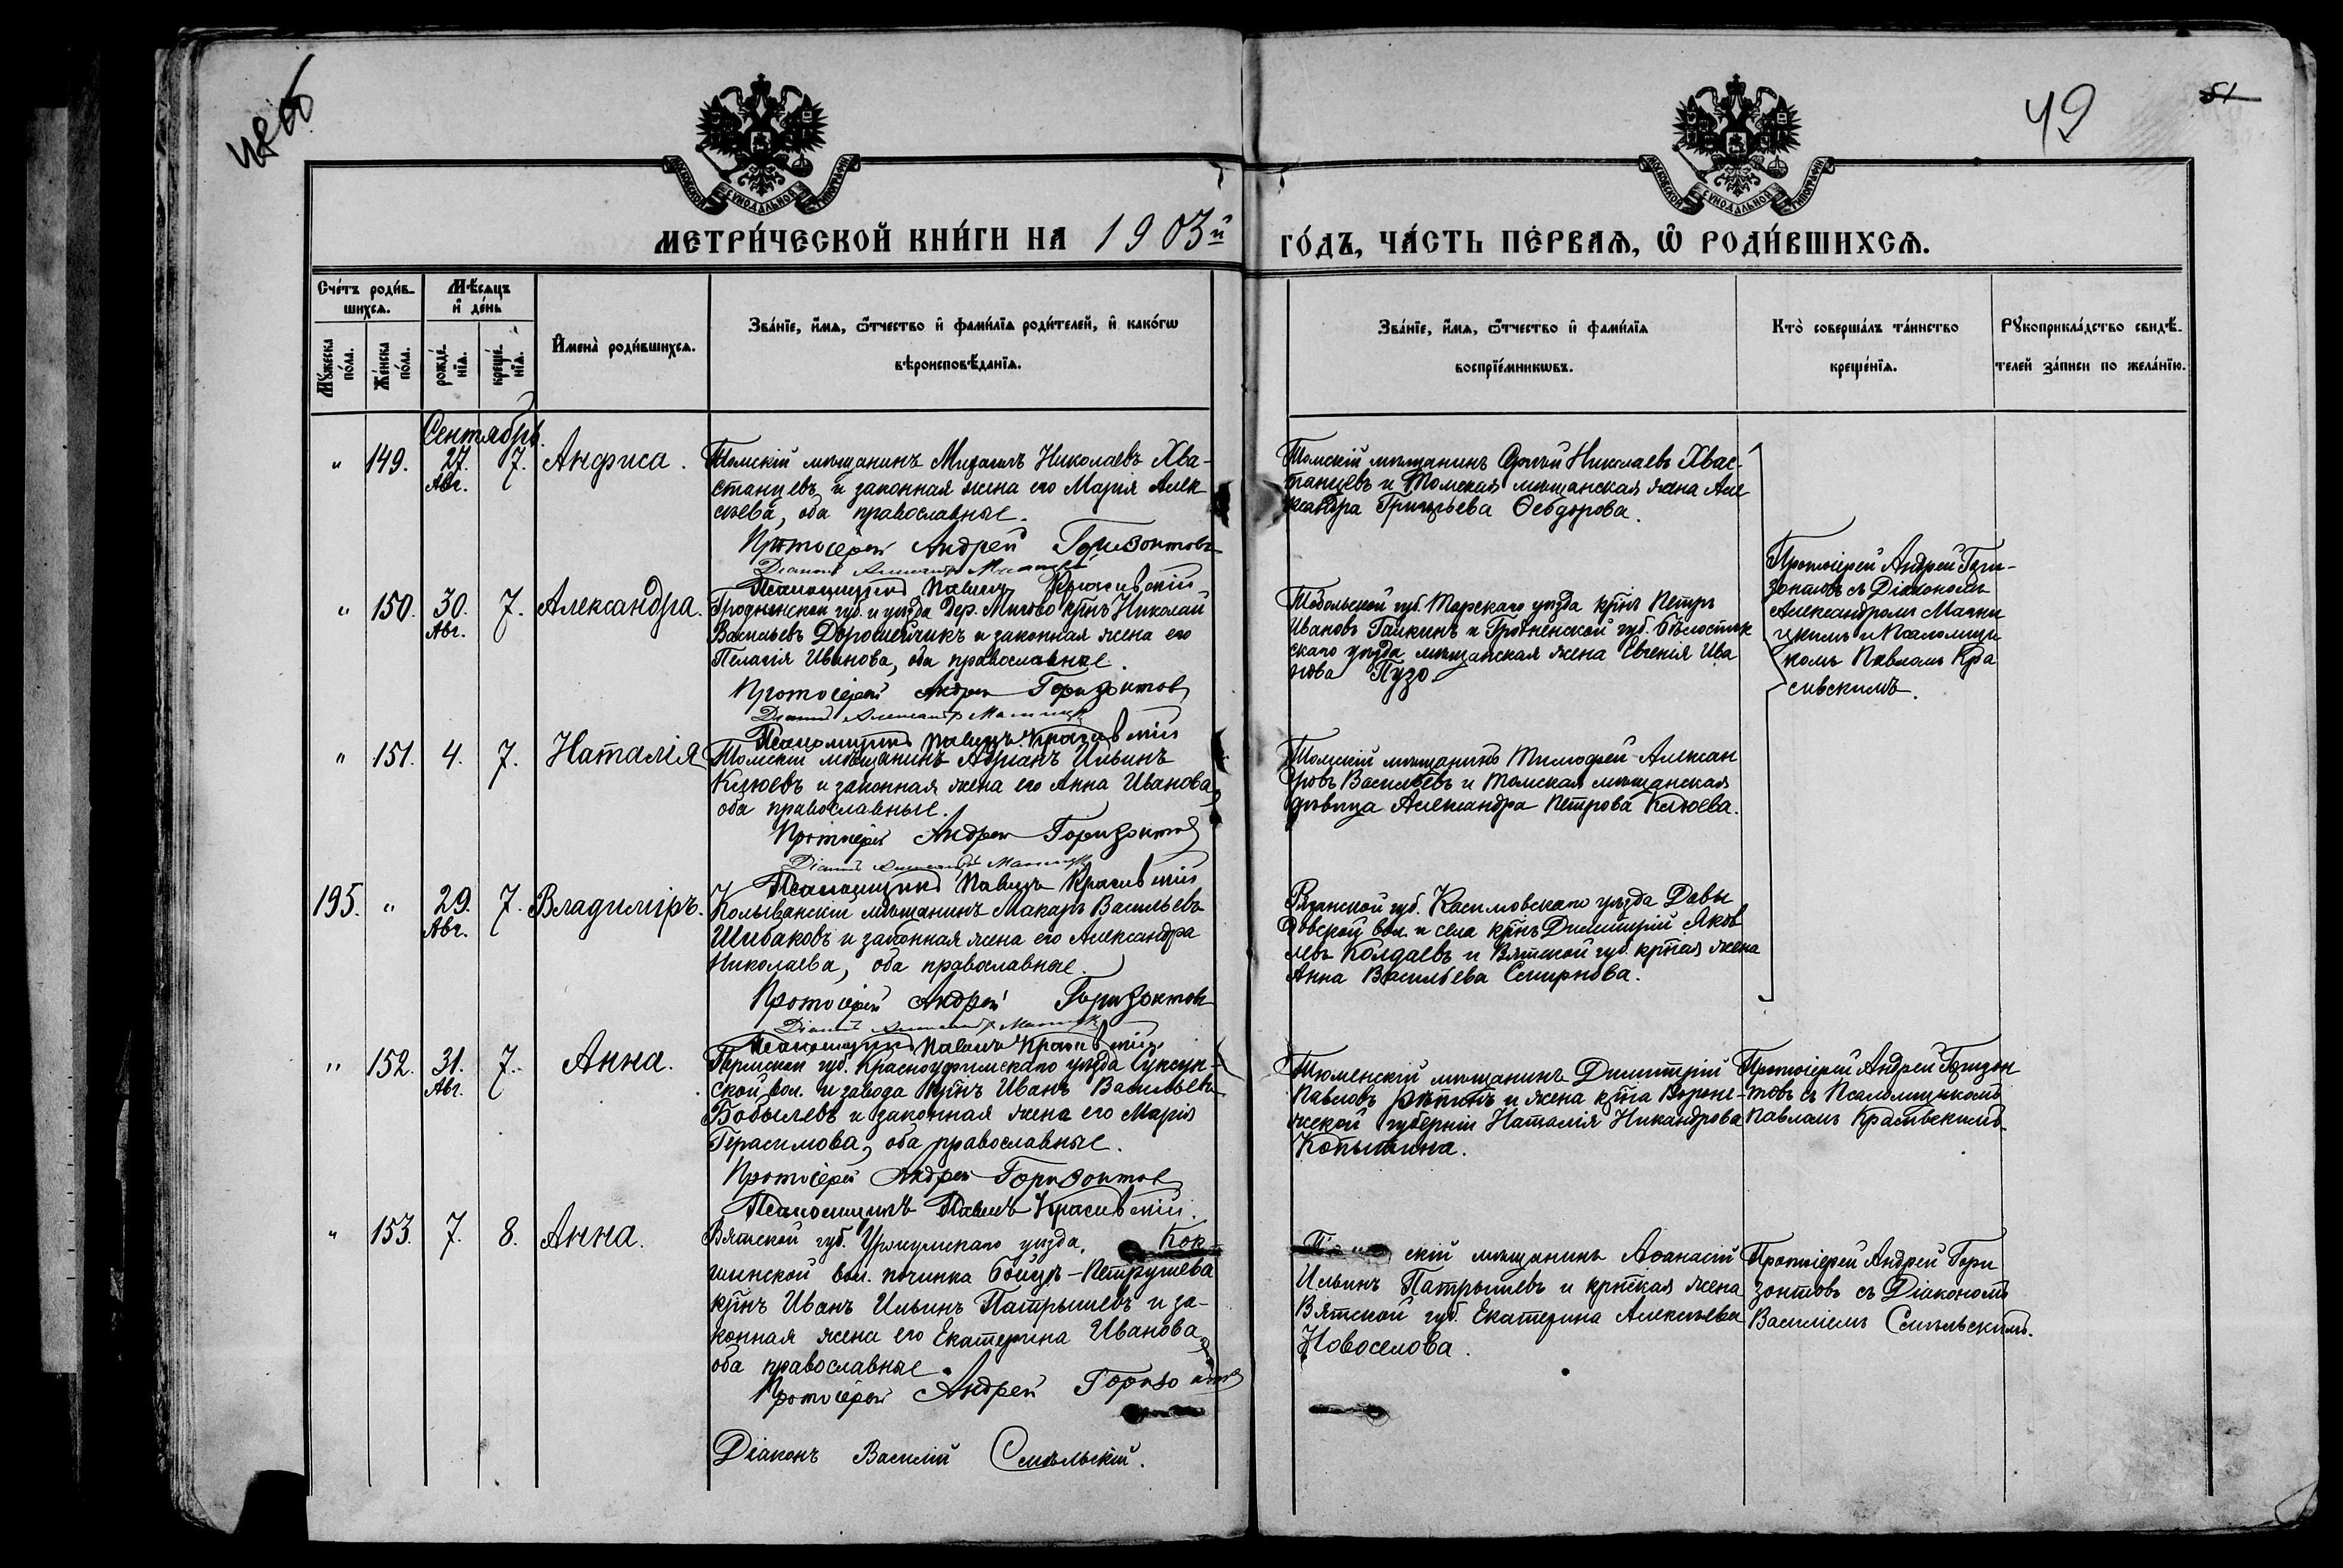 48 об
49
51
МОСКОВСКОЙ СѴНОДАЛЬНОЙ ТИПОГРАФІИ
МОСКОВСКОЙ СѴНОДАЛЬНОЙ ТИПОГРАФІИ
МЕТРИ́ЧЕСКОЙ КНИ́ГИ НА 1903й
ГО́ДЪ, ЧА́СТЬ ПЕ́РВАѦ, Ѿ РОДИ́ВШИХСѦ.
Сче́тъ роди́в-
шихсѧ.
Мѣ́сѧцъ
и҆ де́нь
Мꙋ́жеска
по́ла.
Же́нска
по́ла.
рожде́-
нїѧ.
креще́-
нїѧ.
И҆мена̀ роди́вшихсѧ.
Зва́нїе, и҆́мѧ, ѻ҆́тчество и҆ фами́лїѧ роди́телей, и҆ како́гѡ
вѣроисповѣ́данїѧ.
Зва́нїе, и҆́мѧ, ѻ҆́тчество и҆ фами́лїѧ
воспрїе́мникѡвъ.
Кто̀ соверша́лъ та́инство
креще́нїѧ.
Рꙋкоприкла́дство свидѣ́-
телей за́писи по жела́нїю.
Сентябрь.
" 149. 27. Авг. 7. Анфиса.
Томскій мѣщанинъ Михаилъ Николаевъ Хва-
станцевъ и законная жена его Марія Алек-
сѣева, оба православные.
Протоіерей Андрей Горизонтовъ
Діаконъ Александръ
Псаломщикъ Павелъ Красивскій
Томскій мѣщанинъ Сергѣй Николаевъ Хвас-
танцевъ и Томская мѣщанская жена Але
ксандра Григорьева Ѳеодорова.
Протоіерей Андрей Гори-
зонтовъ съ Діакономъ
Александромъ Мачни
цкимъ и Псаломщи
комъ Павломъ Кра
сивскимъ.
" 150. 30. Авг. 7. Александра.
Гродненской губ. и уѣзда дер. кр̃нъ Николай
Васильевъ Дорошейчикъ и законная жена его
Пелагія Иванова, оба православные.
Протоіерей Андрей Горизонтовъ
Діаконъ Александръ
Псаломщикъ Павелъ Красивскій
Тобольской губ. Тарскаго уѣзда кр̃нъ Петръ
Ивановъ Галкинъ и Гродненской губ. Бѣлосток
скаго уѣзда мѣщанская жена Евгенія Ива
нова Пузо
" 151. 4. 7. Наталія
Томскій мѣщанинъ Адріанъ Ильинъ
Клюевъ и законная жена его Анна Иванова,
оба православные.
Протоіерей Андрей Горизонтовъ
Діаконъ Александръ
Псаломщикъ Павелъ Красивскій
Томскій мѣщанинъ Тимофей Алексан
дровъ Васильевъ и томская мѣщанская
дѣвица Александра Петрова Клюева.
195. " 29. Авг. 7. Владиміръ.
Колыванскій мѣщанинъ Макаръ Васильевъ
Шибаковъ и законная жена его Александра
Николаева, оба православные.
Протоіерей Андрей Горизонтовъ
Діаконъ Александръ
Псаломщикъ Павелъ Красивскій
Рязанской губ. Касимовскаго уѣзда Давы
довской вол. и села кр̃нъ Димитрій Яков
левъ Колдаевъ и Вятской губ. кр̃ткая жена
Анна Васильева Смирнова.
" 152. 31. Авг. 7. Анна.
Пермской губ. Красноуфимскаго уѣзда Суксун-
ской вол. и завода кр̃нъ Иванъ Васильевъ
Бобылевъ и законная жена его Марія
Герасимова, оба православные.
Протоіерей Андрей Горизонтовъ
Псаломщикъ Павелъ Красивскій.
Тюменскій мѣщанинъ Димитрій
Павловъ и жена кр̃на Вороне-
жской губерніи Наталія Никандрова
Копытина.
Протоіерей Андрей Горизон
товъ съ Псаломщикомъ
Павломъ Красивскимъ
" 153. 7. 8. Анна.
Вятской губ. Уржумскаго уѣзда, Кок-
шинской вол. починка Бойцъ-Петрушева
кр̃нъ Иванъ Ильинъ Патрышевъ и за-
конная жена его Екатерина Иванова,
оба православные.
Протоіерей Андрей Горизонтовъ
Діаконъ Василій Смѣльскій.
скій мѣщанинъ Аѳанасій
Ильинъ Патрышевъ и кр̃ткая жена
Вятской губ. Екатерина Алексѣева
Новоселова.
Протоіерей Андрей Гори
зонтовъ съ Діакономъ
Василіемъ Смѣльскимъ.